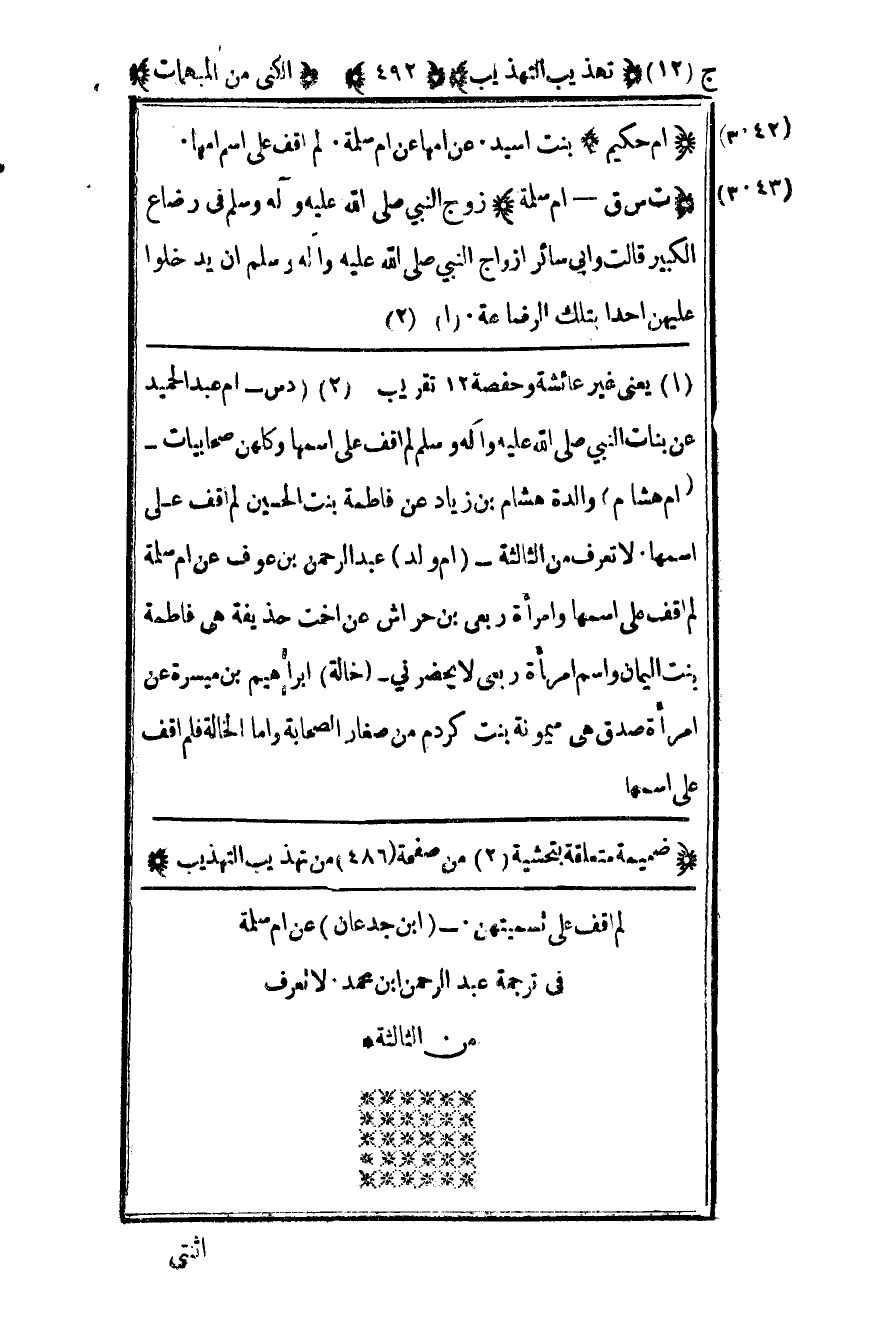 ج (١٢) ﴿ تهذيب التهذيب ﴾ ﴿ ٤٩٢ ﴾ ﴿ الكنى من المبهمات ﴾
(٣٠٤٢) ﴿ ام حكيم ﴾ بنت اسيد. عن امها عن ام سلمة. لم اقف على اسم امها.
(٣٠٤٣) ﴿ ت س ق — ام سلمة ﴾ زوج النبي صلى الله عليه وآله وسلم فى رضاع
الكبير قالت وابى سائر ازواج النبي صلى الله عليه وآله وسلم ان يدخلوا
عليهن احدا بتلك الرضاعة. (١) (٢)
(١) يعنى غير عائشة وحفصة ١٢ تقريب (٢) (دس ـ ام عبدالحميد
عن بنات النبي صلى الله عليه وآله وسلم لم اقف على اسمها وكلهن صحابيات ـ
(ام هشام) والدة هشام بن زياد عن فاطمة بنت الحسين لم اقف على
اسمها. لا تعرف من الثالثة ـ (ام ولد) عبدالرحمن بن عوف عن ام سلمة
لم اقف على اسمها وامرأة ربعى بن حراش عن اخت حذيفة هى فاطمة
بنت اليمان واسم امرأة ربعى لا يحضرني ـ (خالة) ابراهيم بن ميسرة عن
امرأة صدق هى ميمونة بنت كردم من صغار الصحابة واما الخالة فلم اقف
على اسمها
﴿ ضميمة متعلقة بتحشية (٢) من صفحة (٤٨٦) من تهذيب التهذيب ﴾
لم اقف على تسميتهن. ـ (ابن جدعان) عن ام سلمة
فى ترجمة عبد الرحمن ابن محمد. لا تعرف
من الثالثة *
اثنتى